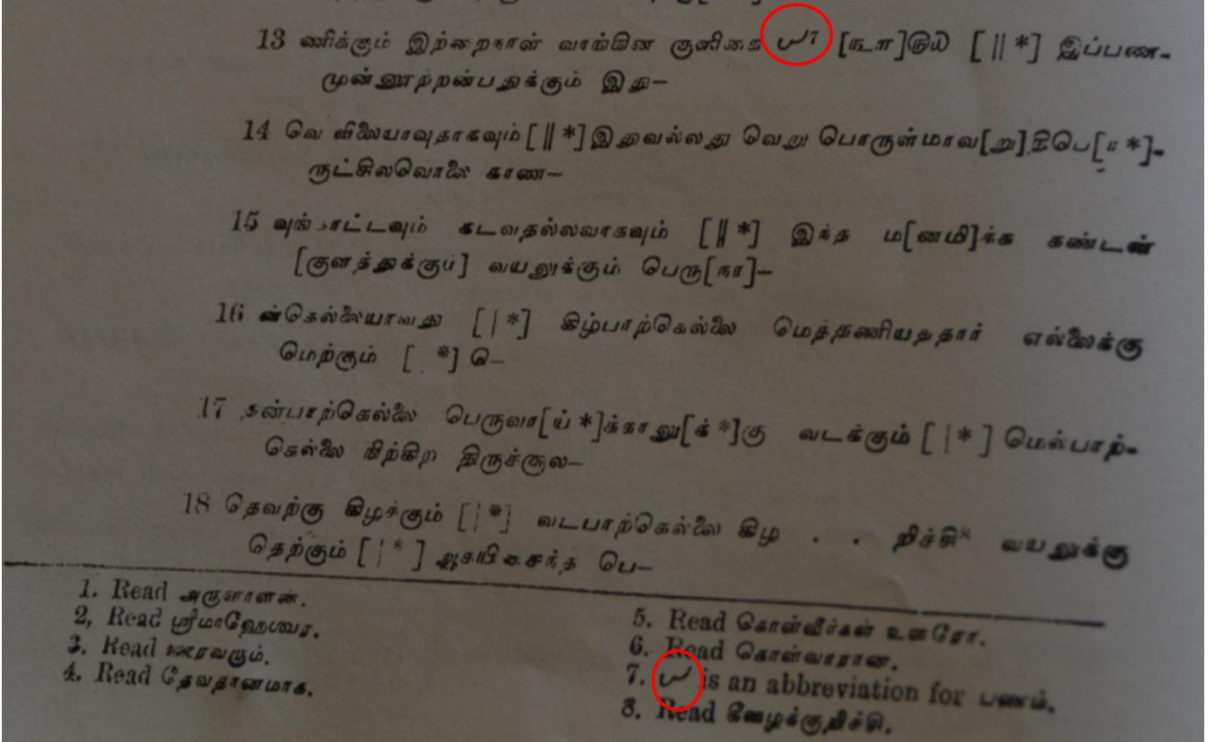 13 ணிக்கும் இற்றைநாள் வாங்கின குளிகை ௺7 [௩௱]௫௰ [||*] இப்பண-
முன்னூற்றன்பதுக்கும் இது-
14 வெ விலையாவுதாகவும் [||*] இதுவல்லது வெறு பொருள்மாவ[று]திபெ[॥*]-
ருட்சிலவொலை காண-
15 வுங்காட்டவும் கடவதல்லவாகவும் [||*] இந்த ம[னமி]க்க கண்டன்
[குளத்துக்கும்] வயலுக்கும் பெரு[நா]-
16 ன்கெல்லையாவது [|*] கிழ்பாற்கெல்லை மெத்தணியததார் எல்லைக்கு
மெற்கும் [ *] தெ-
17 தன்பாற்கெல்லை பெருவா[ய்*]க்காலு[க்*]கு வடக்கும் [|*] மெல்பாற்-
கெல்லை நிற்கிற திருச்சூல-
18 தெவற்கு கிழக்கும் [|*] வடபாற்கெல்லை கிழ . . றிச்சி8 வயலுக்கு
தெற்கும் [|*] ஆகயிசைந்த பெ-
1. Read அருளாளன்.
2, Read ஸ்ரீமாஹேஸ்வர.
3. Read ஊரவரும்.
4. Read தேவதானமாக.
5. Read கொள்வீர்கள் உளரோ.
6. Read கொள்வாரான.
7. is an abbreviation for பணம்.
8. Read கீழைக்குறிச்சி.